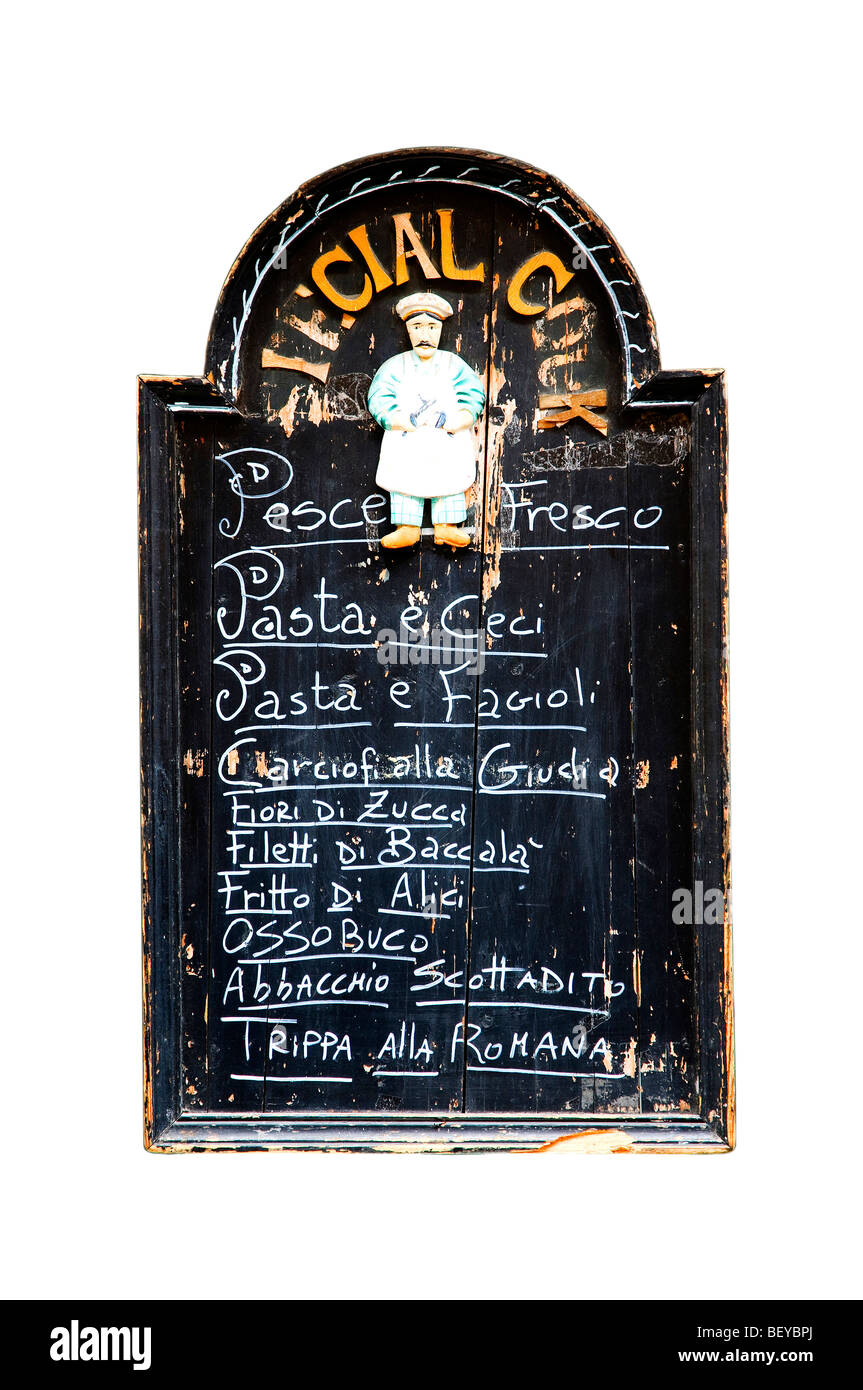 ECIAL COOK
Pesce Fresco
Pasta e Ceci
Pasta e Fagioli
Carciofi alla Giudia
Fiori Di Zucca
Filetti Di Baccalà
Fritto Di Alici
OSSOBUCO
Abbacchio Scottadito
TRIPPA alla ROMANA
alamy
Image ID: BEYBPJ
www.alamy.com